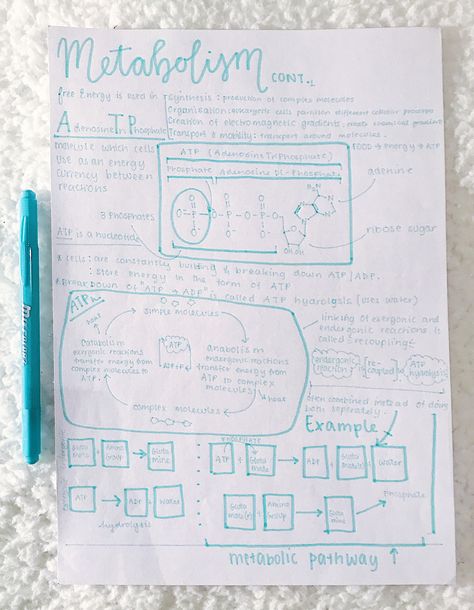 Metabolism CONT.
free Energy is used in
synthesis: production of complex molecules
Organisation: eukaryotic cells partition different cellular processes
Creation of electromagnetic gradients:
Transport & mobility: transport around molecules.
Adenosine Tri Phosphate
molecule which cells
use as an energy
currency between
reactions
ATP (Adenosine TriPhosphate)
Phosphate Adenosine Di-Phosphate
FOOD → Energy → ATP
adenine
3 Phosphates
ribose sugar
ATP is a nucleotide
cells: are constantly building & breaking down ATP/ADP.
: store energy in the form of ATP
Breakdown of "ATP → ADP" is called ATP hydrolysis (uses water)
ATP
simple molecules
heat
Catabolism
exergonic reactions
transfer energy from
complex molecules to
ATP.
ATP
ADP+P
anabolism
endergonic reactions
transfer energy from
ATP to complex
molecules
heat
complex molecules
linking of exergonic and
endergonic reactions is
called "recoupling"
endergonic reaction
[re-coupled to]
ATP hydrolysis
often combined instead of doing
both seprately.
Example
Amino Group → Gluta mine
ATP → ADP + water
hydrolysis
phosphate
ATP + Gluta mate → ADP + water
Amino Group → Gluta mine
Phosphate
metabolic pathway ↑